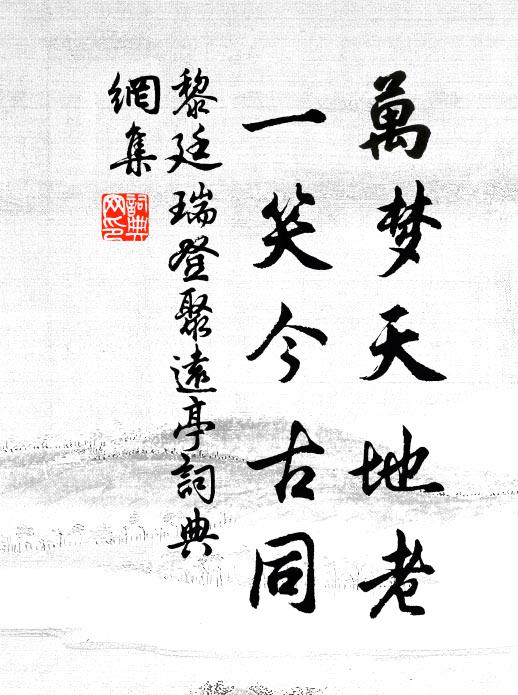 萬梦天地老
一笑今古同
黎廷瑞登聚遠亭詞典
網集
詞典
网印